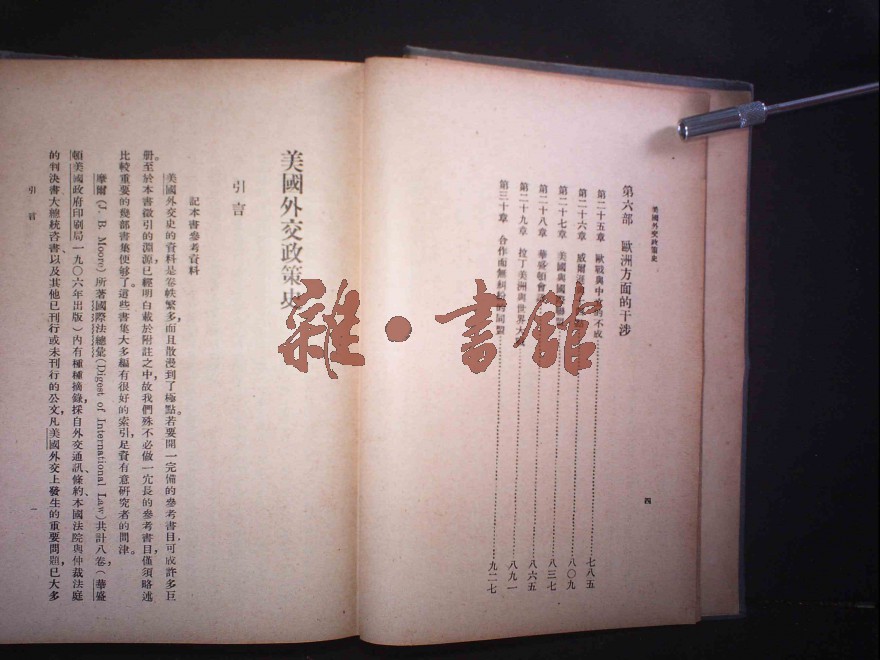 美國外交政策史
第六部　歐洲方面的干涉
第二十五章　歐戰與中立的不成……七八五
第二十六章　威爾……八〇九
第二十七章　美國與國際聯盟……八三七
第二十八章　華盛頓會……八六五
第二十九章　拉丁美洲與世界大……八九一
第三十章　合作而無糾紛的同盟……九二七
四
美國外交政策史
引言
記本書參考資料
美國外交史的資料是卷帙繁多,而且散漫到了極點。若要開一完備的參考書目,可成許多巨
册。至於本書徵引的淵源,已經明白載於附註之中,故我們殊不必做一宂長的參考書目,僅須略述
比較重要的幾部書集便够了。這些書集大多編有很好的索引,足資有意研究者的問津。
摩爾(J. B. Moore)所著國際法總彙(Digest of International Law)共計八卷(華盛
頓美國政府印刷局一九〇六年出版)內有種種摘錄,採自外交通訊、條約、本國法院與仲裁法庭
的判決書、大總統咨書、以及其他已刊行或未刊行的公文,凡美國外交上發生的重要問題,已大多
引言
一
雜·書館